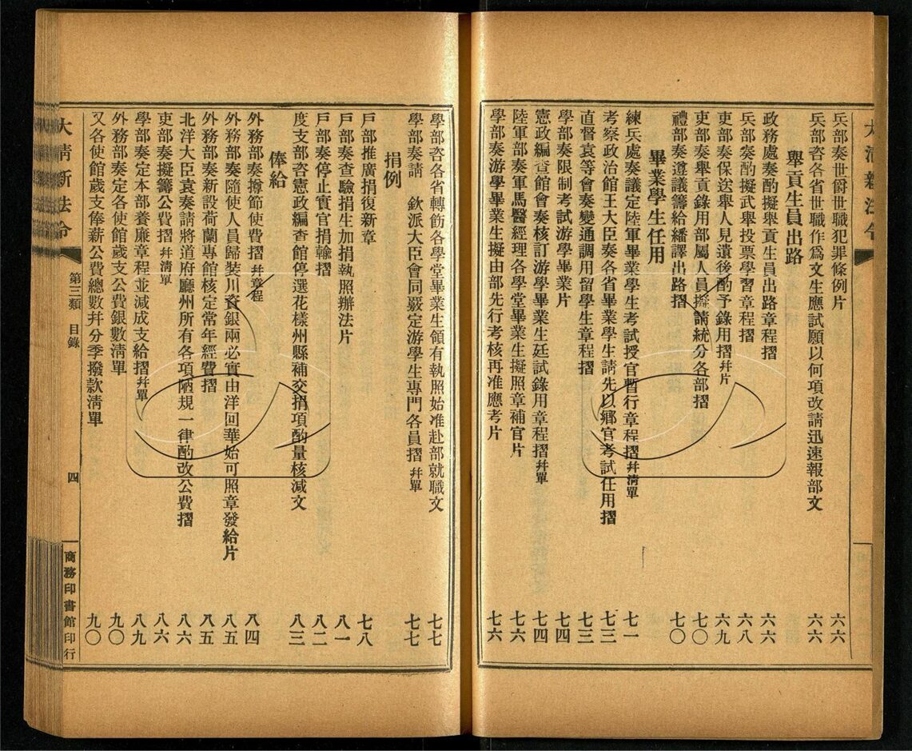 兵部奏世爵世職犯罪條例片 六六
兵部咨各省世職作爲文生應試願以何項改請迅速報部文 六六
舉貢生員出路
政務處奏酌擬舉貢生員出路章程摺 六六
兵部奏酌擬武舉投票學習章程摺 六八
吏部奏保送舉人見遺後酌予錄用摺幷片 六九
吏部奏舉貢錄用部屬人員擬請統分各部摺 七〇
禮部奏遵議籌給繙譯出路摺 七〇
畢業學生任用
練兵處奏議定陸軍畢業學生考試授官暫行章程摺幷淸單 七一
考察政治館王大臣奏各省畢業學生請先以鄕官考試任用摺 七三
直督袁等會奏變通調用留學生章程摺 七三
學部奏限制考試游學畢業片 七四
憲政編查館會奏核訂游學畢業生廷試錄用章程摺幷單 七四
陸軍部奏軍馬醫經理各學堂畢業生擬照章補官片 七六
學部奏游學畢業生擬由部先行考核再准應考片 七六
學部咨各省轉飭各學堂畢業生領有執照始准赴部就職文 七七
學部奏請 欽派大臣會同嚴定游學生專門各員摺幷單 七七
捐例
戶部推廣捐復新章 七八
戶部奏查驗捐生加捐執照辦法片 八一
戶部奏停止實官捐輸摺 八二
度支部咨憲政編查館停選花樣州縣補交捐項酌量核減文 八三
俸給
外務部奏撙節使費摺幷章程 八四
外務部奏隨使人員歸裝川資銀兩必實由洋回華始可照章發給片 八五
外務部奏新設荷蘭專館核定常年經費摺 八五
北洋大臣袁奏請將道府廳州所有各項陋規一律酌改公費摺 八六
吏部奏擬籌公費摺幷淸單 八六
學部奏定本部養廉章程並減成支給摺幷單 八九
外務部奏定各使館歲支公費銀數淸單 九〇
又各使館歲支俸薪公費總數幷分季撥款淸單 九〇
大淸新法令
第三類 目錄
四
商務印書館印行